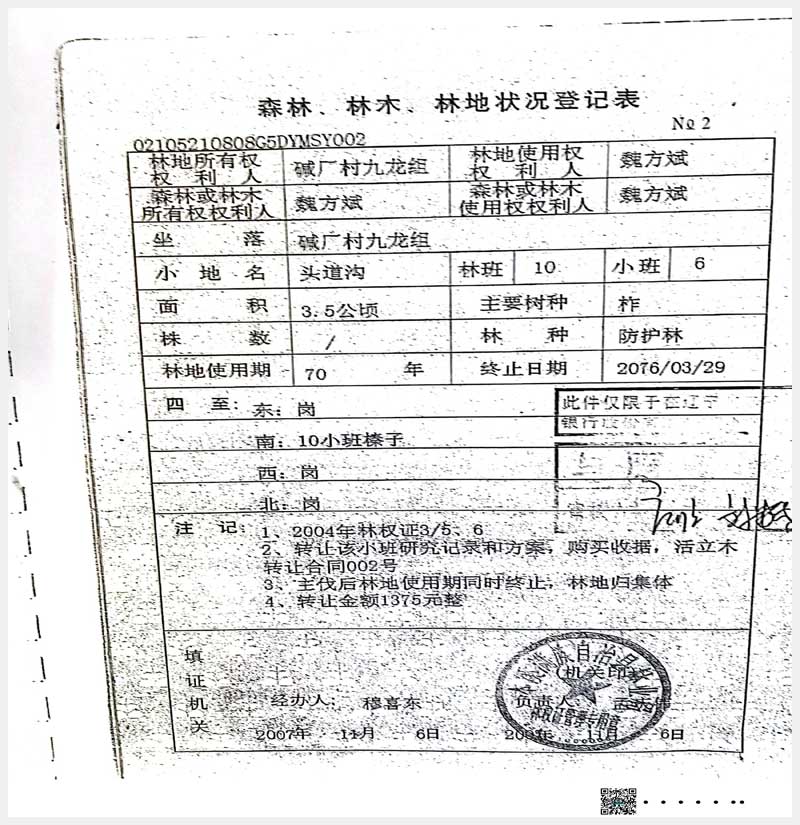 森林、林木、林地状况登记表
№ 2
02105210808G5DYMSY002
林地所有权权利人 碱厂村九龙组 林地使用权权利人 魏方斌
森林或林木所有权权利人 魏方斌 森林或林木使用权权利人 魏方斌
坐落 碱厂村九龙组
小地名 头道沟 林班 10 小班 6
面积 3.5公顷 主要树种 柞
株数 / 林种 防护林
林地使用期 70 年 终止日期 2076/03/29
四至: 东: 岗
此件仅限于在辽宁
银行
南: 10小班榛子
西: 岗
北: 岗
注记: 1、2004年林权证3/5、6
2、转让该小班研究记录和方案，购买收据，活立木
转让合同002号
3、主伐后林地使用期同时终止，林地归集体
4、转让金额1375元整
填证机关
(机关印)
经办人: 穆喜东 负责人:
2007年 11月 6日 11月 6日